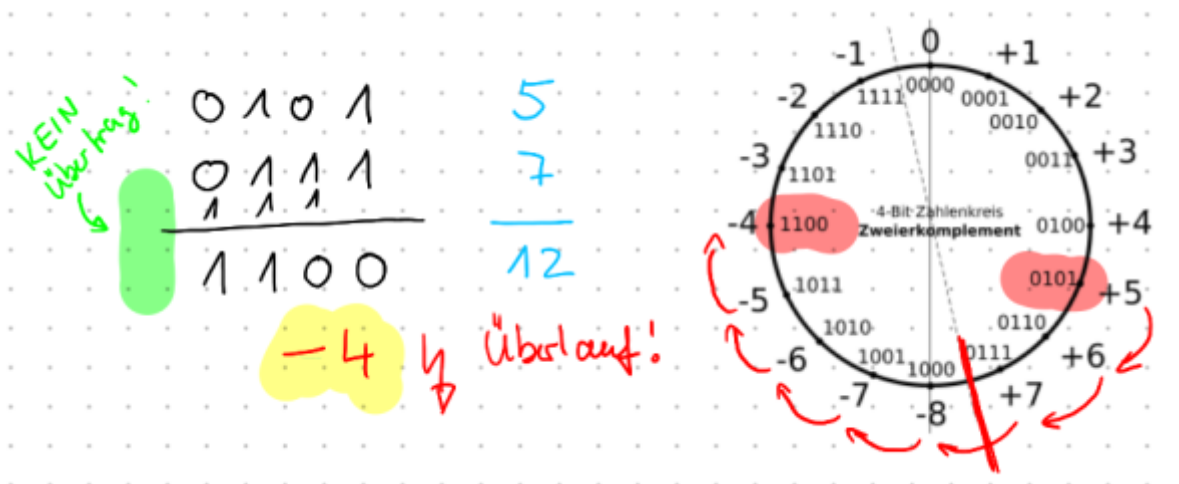 KEIN
übertrag!
0 1 0 1
0 1 1 1
1 1 1
1 1 0 0
-4
Überlauf!
5
7
12
0
+1
+2
+3
+4
+5
+6
+7
-8
-7
-6
-5
-4
-3
-2
-1
0000
0001
0010
0011
0100
0101
0110
0111
1000
1001
1010
1011
1100
1101
1110
1111
4-Bit-Zahlenkreis
Zweierkomplement